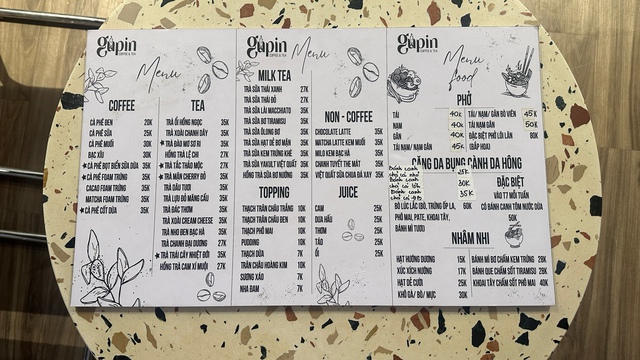 gupin
COFFEE & TEA
Menu
COFFEE
CÀ PHÊ ĐEN 20K
CÀ PHÊ SỮA 25K
CÀ PHÊ MUỐI 30K
BẠC XỈU 30K
★ CÀ PHÊ BỌT BIỂN SỮA DỪA 35K
★ CÀ PHÊ FOAM TRỨNG 35K
CACAO FOAM TRỨNG 35K
MATCHA FOAM TRỨNG 35K
★ CÀ PHÊ CỐT DỪA 35K
TEA
TRÀ ỔI HỒNG NGỌC 35K
TRÀ XOÀI CHANH DÂY 35K
★ TRÀ ĐÀO MƠ SƠ RI 35K
HỒNG TRÀ LÊ CHI 27K
★ TRÀ TẮC THẢO MỘC 27K
★ TRÀ MẬN CHERRY ĐỎ 35K
TRÀ DÂU TƯƠI 35K
TRÀ LỰU ĐỎ MÃNG CẦU 35K
TRÀ ĐÁC THƠM 35K
TRÀ XOÀI CREAM CHEESE 35K
TRÀ NHO ĐEN BẠC HÀ 35K
TRÀ CHANH ĐẠI DƯƠNG 27K
★ TRÀ TRÁI CÂY NHIỆT ĐỚI 35K
HỒNG TRÀ CAM XÍ MUỘI 27K
gupin
COFFEE & TEA
Menu
MILK TEA
TRÀ SỮA THÁI XANH 27K
TRÀ SỮA THÁI ĐỎ 27K
TRÀ SỮA LÀI MACCHIATO 35K
TRÀ SỮA BƠ TIRAMISU 35K
TRÀ SỮA ÔLONG BƠ 35K
TRÀ SỮA HẠT DẺ BƠ MẶN 35K
TRÀ SỮA KEM TRỨNG KHÈ 35K
TRÀ SỮA YAKULT VIỆT QUẤT 35K
HỒNG TRÀ SỮA BƠ NƯỚNG 35K
NON - COFFEE
CHOCOLATE LATTE 35K
MATCHA LATTE KEM MUỐI 35K
MILO KEM BẠC HÀ 35K
CHANH TUYẾT THE MÁT 35K
VIỆT QUẤT SỮA CHUA ĐÁ XAY 35K
TOPPING
THẠCH TRÂN CHÂU TRẮNG 10K
THẠCH TRÂN CHÂU ĐEN 10K
THẠCH PHÔ MAI 10K
PUDDING 10K
THẠCH DỪA 7K
TRÂN CHÂU HOÀNG KIM 10K
SƯƠNG SÁO 7K
NHA ĐAM 7K
JUICE
CAM 25K
DƯA HẤU 25K
THƠM 25K
TÁO 25K
ỔI 25K
gupin
COFFEE & TEA
Menu
food
PHỞ
TÁI 40K
NẠM 40K
GÂN 40K
TÁI NẠM/ GÂN 45K
TÁI/ NẠM/ GÂN BÒ VIÊN 45K
TÁI NẠM GÂN 50K
ĐẶC BIỆT PHỞ LÕI LÂN 80K
(BẮP HOA)
CĂNG DA BỤNG CÀNH DA HÔNG
Bánh canh
25K
Bánh canh
30K
Bánh canh
35K
BÒ LÚC LẮC (BÒ, TRỨNG ỐP LA, 60K
PHÔ MAI, PATE, KHOAI TÂY,
BÁNH MÌ TƯƠI)
ĐẶC BIỆT
VÀO T7 MỖI TUẦN
CÓ BÁNH CANH TÔM NƯỚC DỪA
50K
NHÂM NHI
HẠT HƯỚNG DƯƠNG 15K
XÚC XÍCH NƯỚNG 17K
HẠT DẺ CƯỜI 25K
KHÔ GÀ/ BÒ/ MỰC 30K
BÁNH MÌ BƠ CHẤM KEM TRỨNG 28K
BÁNH QUE CHẤM SỐT TIRAMISU 28K
KHOAI TÂY CHẤM SỐT PHÔ MAI 40K